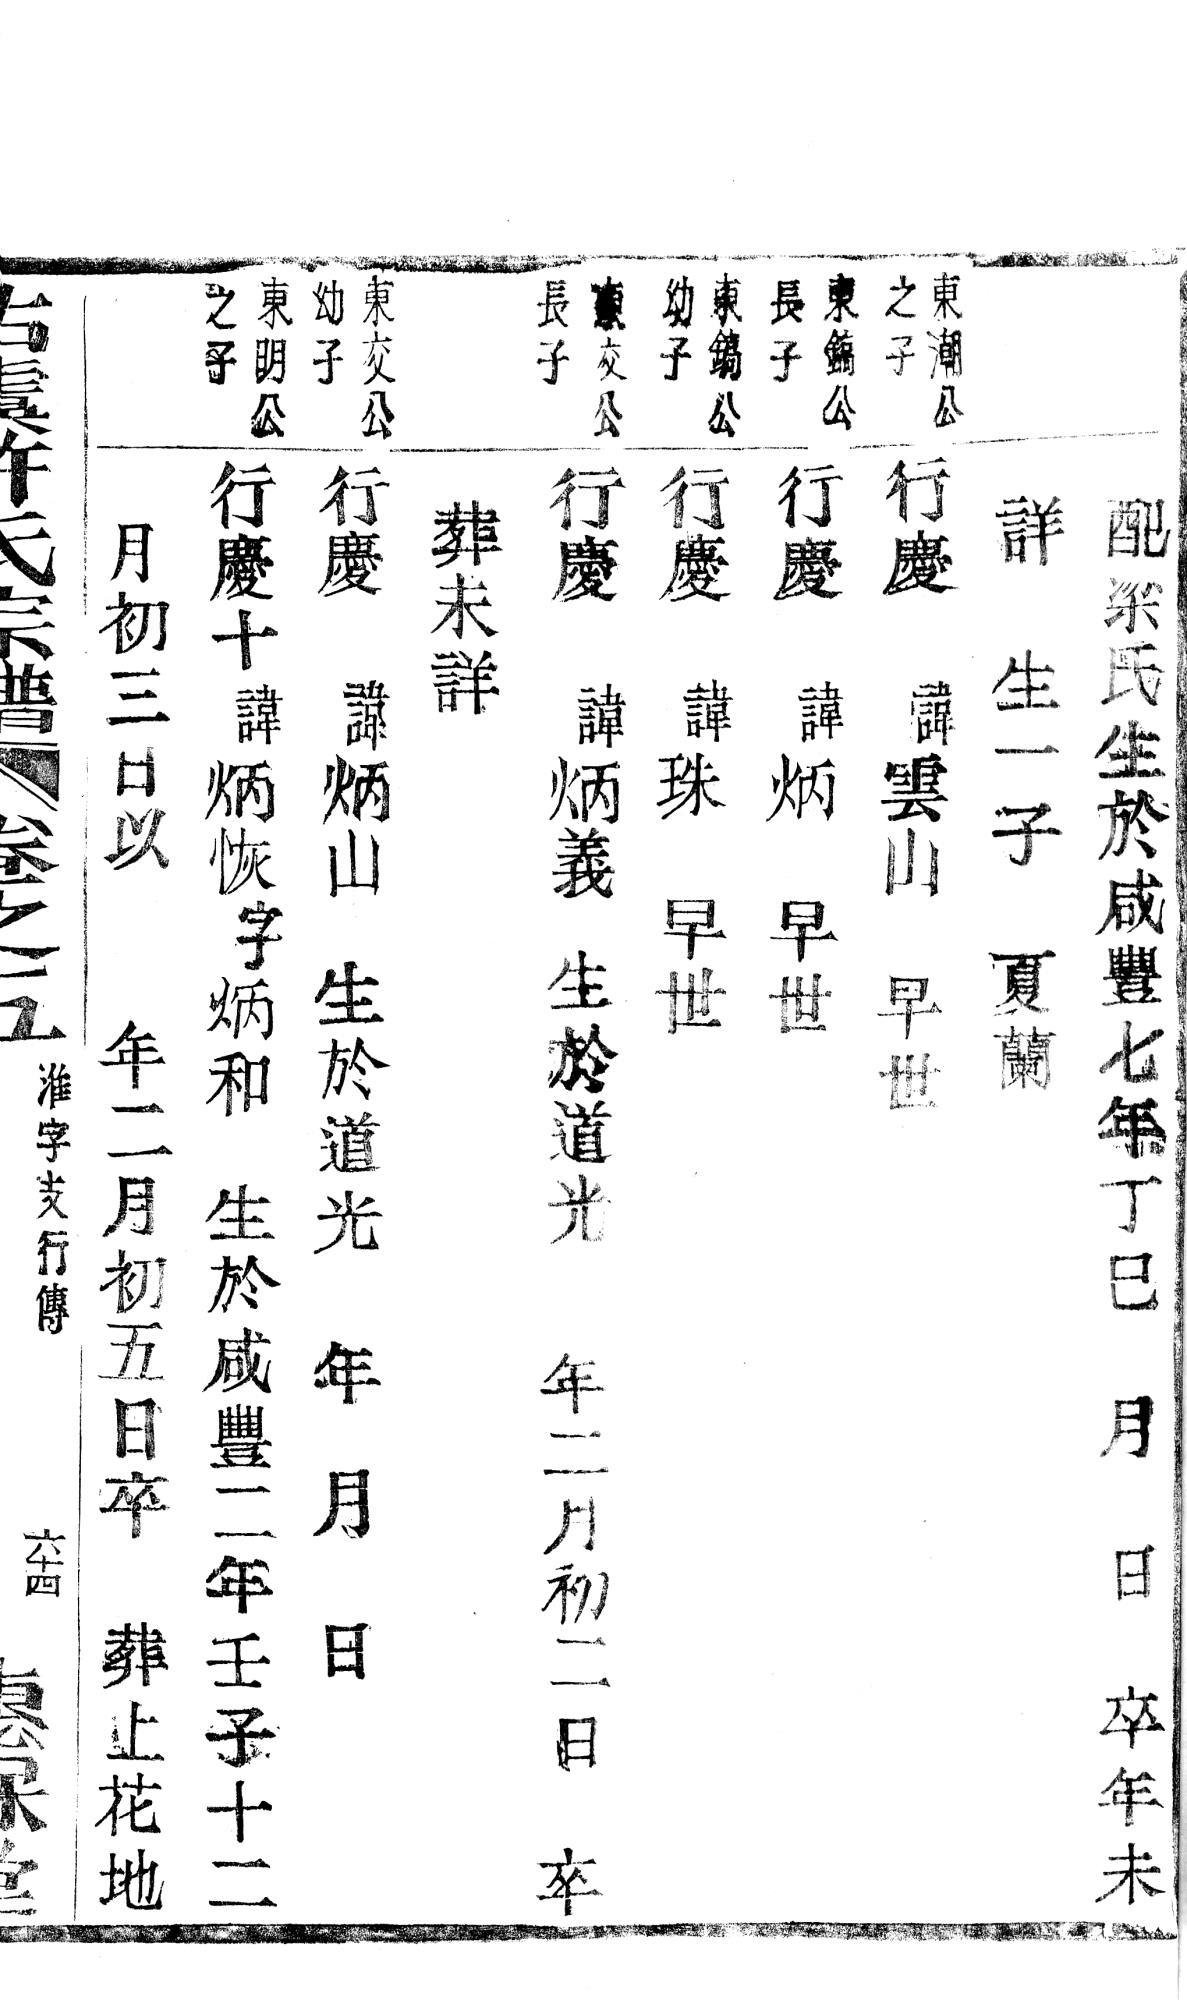 配梁氏生於咸豐七年丁巳 月 日 卒年未
詳 生一子 夏蘭
東潮公
之子
行慶 諱雲山 早世
東鎬公
長子
行慶 諱炳 早世
東鎬公
幼子
行慶 諱珠 早世
東交公
長子
行慶 諱炳義 生於道光 年二月初二日 卒
葬未詳
東交公
幼子
行慶 諱炳山 生於道光 年 月 日
東明公
之子
行慶十 諱炳恢字炳和 生於咸豐二年壬子十二
月初三日以 年二月初五日卒 葬止花地
古虞許氏宗譜 卷之五
淮字支行傳
六十四